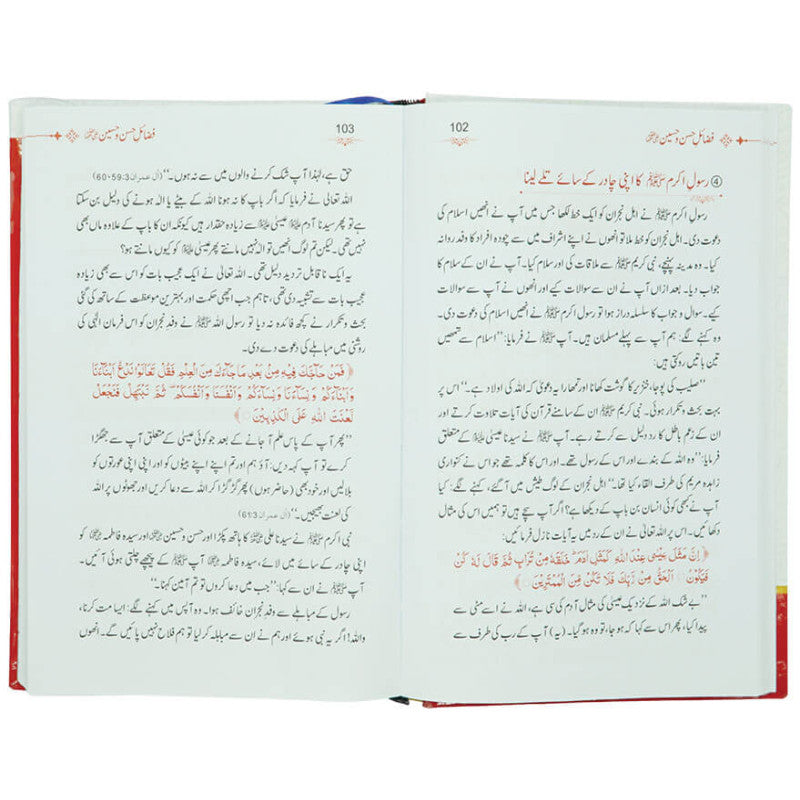 فضائل حسن وحسین رضی اللہ عنہما
102
④ رسولِ اکرم ﷺ کا اپنی چادر کے سائے تلے لینا
رسولِ اکرم ﷺ نے اہل نجران کو ایک خط لکھا جس میں آپ نے انھیں اسلام کی
دعوت دی۔ اہل نجران کو خط ملا تو انھوں نے اپنے اشراف میں سے چودہ افراد کا وفد روانہ
کیا۔ وہ مدینہ پہنچے، نبی کریم ﷺ سے ملاقات کی اور سلام کیا۔ آپ نے ان کے سلام کا
جواب دیا۔ بعد ازاں آپ نے ان سے سوالات کیے اور انھوں نے آپ سے سوالات
کیے۔ سوال و جواب کا سلسلہ دراز ہوا تو رسولِ اکرم ﷺ نے انھیں اسلام کی دعوت دی۔
وہ کہنے لگے: ہم آپ سے پہلے مسلمان ہیں۔ آپ ﷺ نے فرمایا: ”اسلام سے تمھیں
تین باتیں روکتی ہیں:
”صلیب کی پوجا، خنزیر کا گوشت کھانا اور تمھارا یہ دعویٰ کہ اللہ کی اولاد ہے۔“ اس پر
بہت بحث و تکرار ہوئی۔ نبی کریم ﷺ ان کے سامنے قرآن کی آیات تلاوت کرتے اور
ان کے زعمِ باطل کا رد دلیل سے کرتے رہے۔ آپ ﷺ نے سیدنا عیسیٰ علیہ السلام کے متعلق
فرمایا: ”وہ اللہ کے بندے اور اس کے رسول تھے۔ اور اس کا کلمہ تھے جو اس نے کنواری
زاہدہ مریم کی طرف القاء کیا تھا۔“ اہل نجران کے لوگ طیش میں آ گئے، کہنے لگے: کیا
آپ نے کبھی کوئی انسان بن باپ کے دیکھا ہے؟ اگر آپ سچے ہیں تو ہمیں اس کی مثال
دکھائیں۔ اس پر اللہ تعالیٰ نے ان کے رد میں یہ آیات نازل فرمائیں:
﴿ إِنَّ مَثَلَ عِيسَىٰ عِندَ اللَّهِ كَمَثَلِ آدَمَ ۖ خَلَقَهُ مِن تُرَابٍ ثُمَّ قَالَ لَهُ كُن
فَيَكُونُ ○ الْحَقُّ مِن رَّبِّكَ فَلَا تَكُن مِّنَ الْمُمْتَرِينَ ○ ﴾
”بے شک اللہ کے نزدیک عیسیٰ کی مثال آدم کی سی ہے، اس نے اسے مٹی سے
پیدا کیا، پھر اس سے کہا کہ ہو جا، تو وہ ہو گیا۔ (یہ) آپ کے رب کی طرف سے
فضائل حسن وحسین رضی اللہ عنہما
103
حق ہے، لہٰذا آپ شک کرنے والوں میں سے نہ ہوں۔“ (آل عمران 3:59-60)
اللہ تعالیٰ نے فرمایا کہ اگر باپ کا نہ ہونا اللہ کے بیٹے یا الٰہ ہونے کی دلیل بن سکتا
ہے تو پھر سیدنا آدم علیہ السلام عیسیٰ علیہ السلام سے زیادہ حقدار ہیں کیونکہ ان کا باپ کے علاوہ ماں بھی
نہیں تھی۔ لیکن تم لوگ انھیں تو الٰہ نہیں مانتے پھر عیسیٰ ہی کو کیوں مانتے ہو؟
یہ ایک نا قابلِ تردید دلیل تھی۔ اللہ تعالیٰ نے ایک عجیب بات کو اس سے بھی زیادہ
عجیب بات سے تشبیہ دی تھی، تاہم جب اچھی حکمت اور بہترین موعظت کے ساتھ کی گئی
بحث و تکرار نے کچھ فائدہ نہ دیا تو رسول اللہ ﷺ نے وفدِ نجران کو اس فرمانِ الٰہی کی
روشنی میں مباہلے کی دعوت دے دی۔
﴿ فَمَنْ حَاجَّكَ فِيهِ مِن بَعْدِ مَا جَاءَكَ مِنَ الْعِلْمِ فَقُلْ تَعَالَوْا نَدْعُ أَبْنَاءَنَا
وَأَبْنَاءَكُمْ وَنِسَاءَنَا وَنِسَاءَكُمْ وَأَنفُسَنَا وَأَنفُسَكُمْ ثُمَّ نَبْتَهِلْ فَنَجْعَل
لَّعْنَتَ اللَّهِ عَلَى الْكَاذِبِينَ ○ ﴾
”پھر آپ کے پاس علم آ جانے کے بعد جو کوئی عیسیٰ کے متعلق آپ سے جھگڑا
کرے تو آپ کہہ دیں: آؤ ہم اور تم اپنے اپنے بیٹوں کو اور اپنی اپنی عورتوں کو
بلالیں اور خود بھی (حاضر ہوں) پھر گڑ گڑا کر اللہ سے دعا کریں اور جھوٹوں پر اللہ
کی لعنت بھیجیں۔“ (آل عمران 3:61)
نبی اکرم ﷺ نے سیدنا علی رضی اللہ عنہ کا ہاتھ پکڑا اور حسن و حسین رضی اللہ عنہما اور سیدہ فاطمہ رضی اللہ عنہا کو
اپنی چادر کے سائے میں لائے، سیدہ فاطمہ آپ ﷺ کے پیچھے چلتی ہوئی آئیں۔
آپ ﷺ نے ان سے کہا: ”جب میں دعا کروں تو تم آمین کہنا۔“
رسول کے مباہلے سے وفدِ نجران خائف ہوا۔ وہ آپس میں کہنے لگے: ایسا مت کرنا،
واللہ! اگر یہ نبی ہوئے اور ہم نے ان سے مباہلہ کر لیا تو ہم فلاح نہیں پائیں گے۔ انھوں